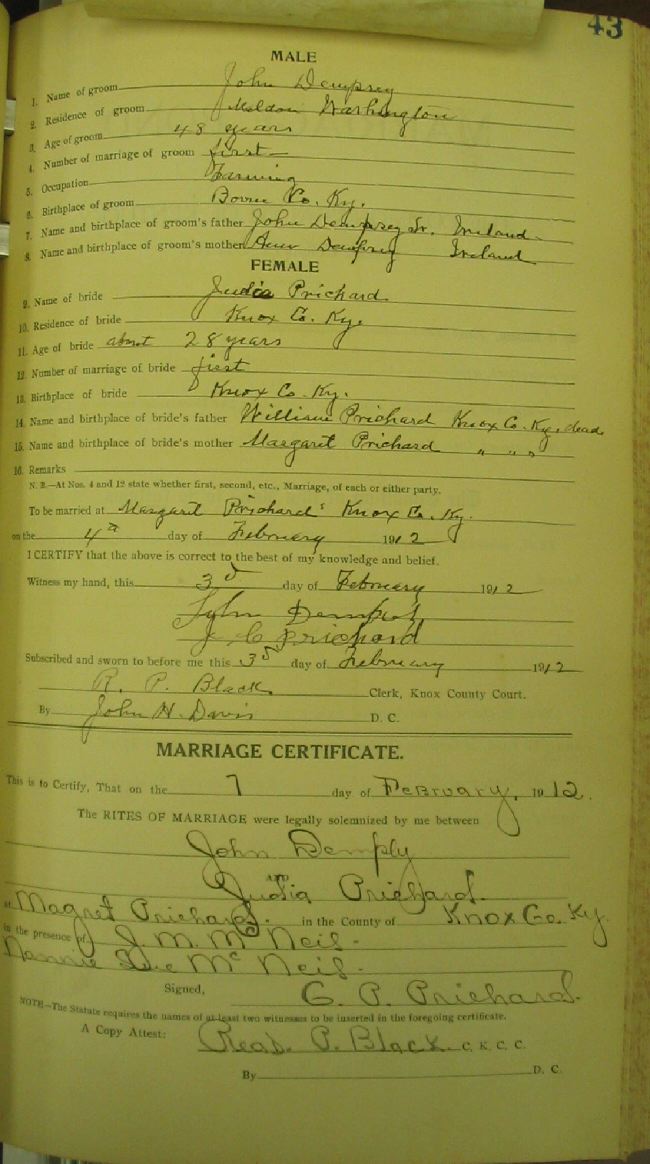 43
MALE
1. Name of groom John Dempsey
2. Residence of groom Meldon Washington
3. Age of groom 48 years
4. Number of marriage of groom first
5. Occupation Farming
6. Birthplace of groom Co. Ky.
7. Name and birthplace of groom's father John Dempsey Sr. Ireland
8. Name and birthplace of groom's mother Ann Dempsey Ireland
FEMALE
9. Name of bride Judia Prichard
10. Residence of bride Knox Co. Ky.
11. Age of bride about 28 years
12. Number of marriage of bride first
13. Birthplace of bride Knox Co. Ky.
14. Name and birthplace of bride's father William Prichard Knox Co. Ky. dead
15. Name and birthplace of bride's mother Margarit Prichard " " "
16. Remarks
N. B.—At Nos. 4 and 12 state whether first, second, etc., Marriage, of each or either party.
To be married at Margarit Prichards' Knox Co. Ky.
on the 4th day of February 1912
I CERTIFY that the above is correct to the best of my knowledge and belief.
Witness my hand, this 3d day of February 1912
John
J C Prichard
Subscribed and sworn to before me this 3d day of February 1912
R. P. Black Clerk, Knox County Court.
By John H. Davis D. C.
MARRIAGE CERTIFICATE.
This is to Certify, That on the 7 day of February, 1912.
The RITES OF MARRIAGE were legally solemnized by me between
John Demply
AND
Judia Prichard.
at Magret Prichards. in the County of Knox Co. Ky.
in the presence of J. M. Mc Neil.
Nannie Mc Neil.
Signed, G. P. Prichard.
NOTE—The Statute requires the names of at least two witnesses to be inserted in the foregoing certificate.
A Copy Attest: Read P. Black C. K. C. C.
By D. C.